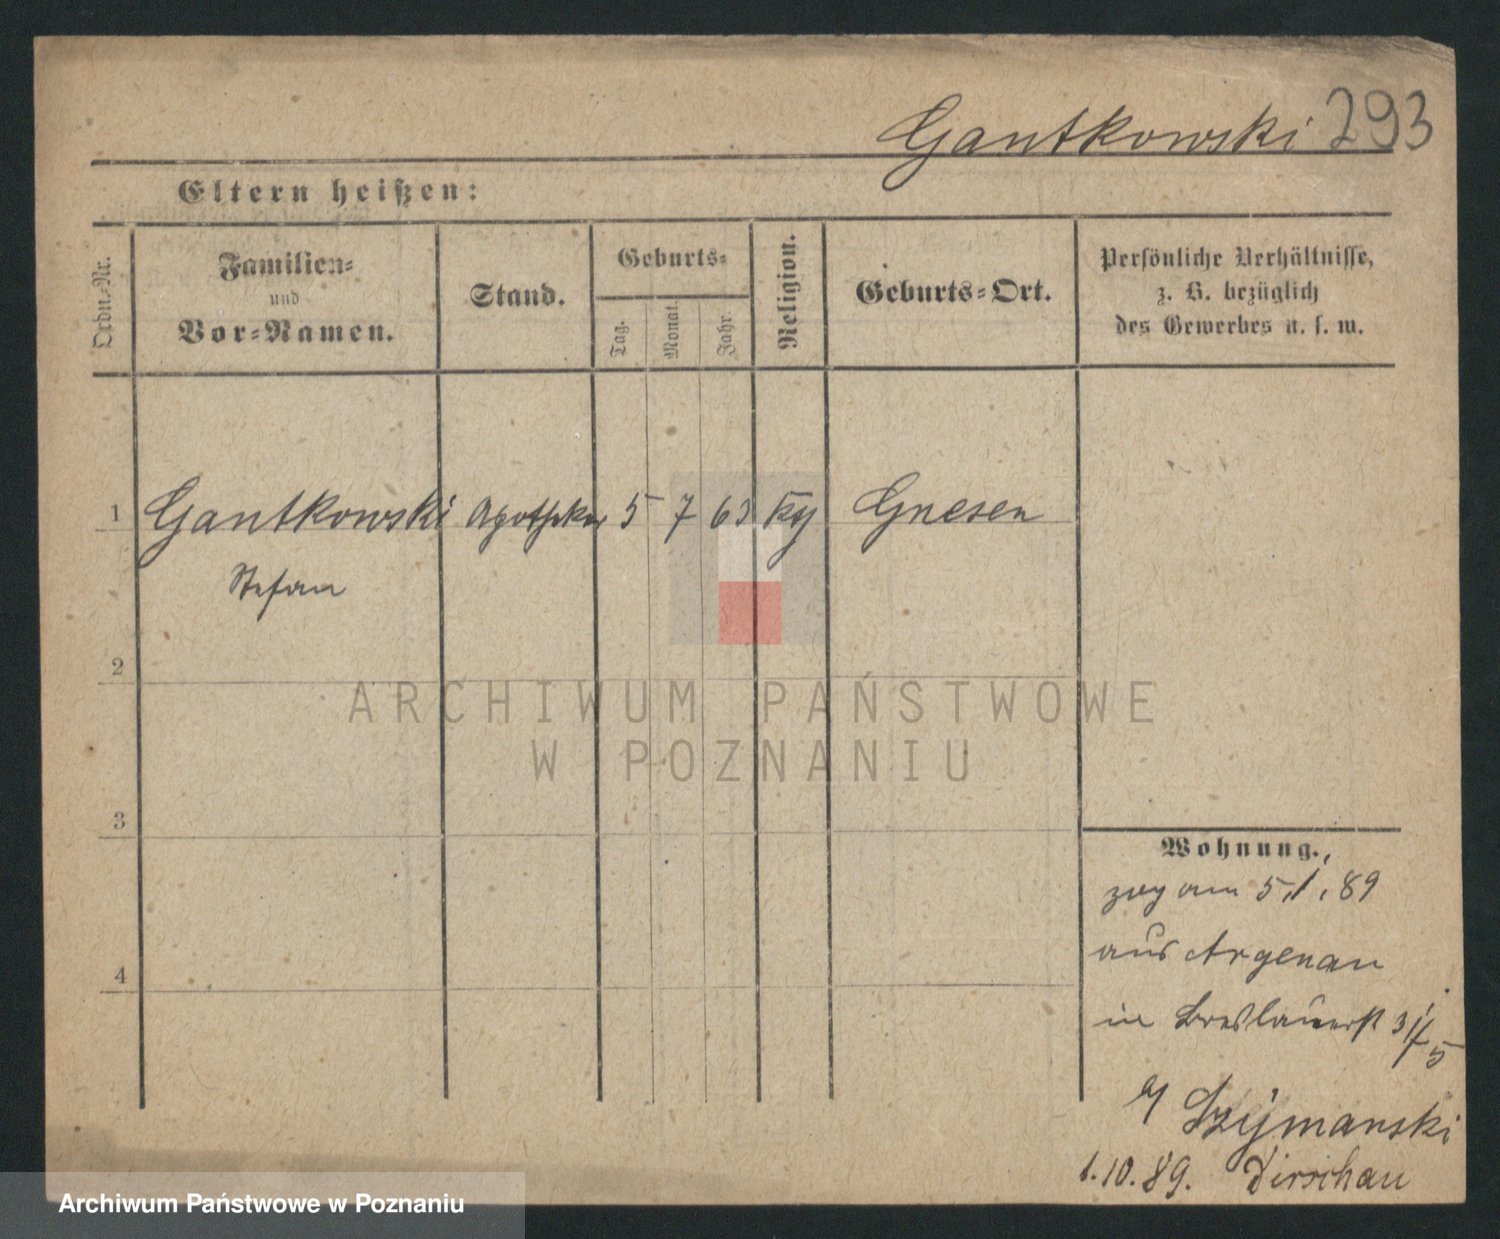 Gantkowski 293
Eltern heißen:
Ordn.-Nr.
Familien-
und
Vor-Namen.
Stand.
Geburts-
Tag.
Monat.
Jahr.
Religion.
Geburts-Ort.
Persönliche Verhältnisse,
z. B. bezüglich
des Gewerbes u. s. w.
1 Gantkowski Apotheker 5 7 63 kg Gnesen
Stefan
2
3
4
ARCHIWUM PAŃSTWOWE
W POZNANIU
Wohnung.
zog am 5.1.89
aus Argenau
in Breslauerst 31/5
Szymanski
1.10.89. Dirschau
Archiwum Państwowe w Poznaniu